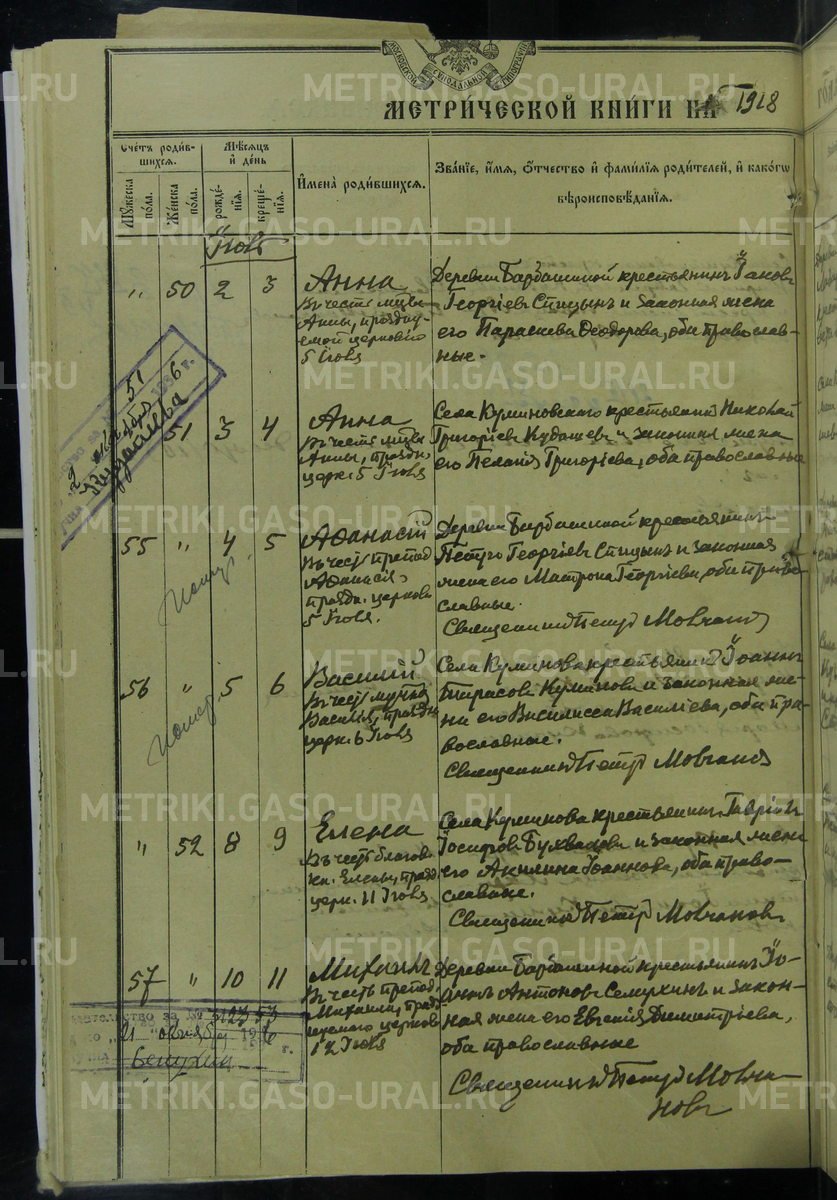 МЕТРИЧЕСКОЙ КНИГИ НА 1918
Счетъ родив-
шихся.
Мѣсяцъ
и день
Мужеска
пола.
Женска
пола.
рожде-
нія.
креще-
нія.
Имена родившихся.
Званіе, имя, отчество и фамилія родителей, и какогѡ
вѣроисповѣданія.
Іюль
" 50 2 3
Анна
Въ честь
Анны, праздну-
емой церковію
5 Іюля
Деревни Барбашиной крестьянинъ Іаковъ
Георгіевъ Спицынъ и законная жена
его Параскева Ѳеодорова, оба православ-
ные.
51 3 4
Анна
Въ честь
Анны, праздн.
церк. 5 Іюля
Села Куминовскаго крестьянинъ Николай
Григорьевъ Кудашевъ и законная жена
его Пелагія Григоріева, оба православные
55 " 4 5
Аѳанасій
Въ честь препод.
Аѳанасія,
праздн. церковію
5 Іюля.
Деревни Барбашиной крестьянинъ
Петръ Георгіевъ Спицынъ и законная
жена его Матрона Георгіева, оба право-
славные.
Священникъ Петръ Мовчановъ
56 " 5 6
Помер.
Василій
Въ честь мучен.
Василія, праздн.
церк. 6 Іюля
Села Куминова крестьянинъ Іоаннъ
Тарасовъ Куминовъ и законная же-
на его Василисса Василіева, оба пра-
вославные.
Священникъ Петръ Мовчановъ
" 52 8 9
Елена
Въ честь благов.
кн. Елены, празд.
церк. 11 Іюля
Села Куминова крестьянинъ Гавріилъ
Іосифовъ и законная жена
его Акилина Іоаннова, оба право-
славные.
Священникъ Петръ Мовчановъ
57 " 10 11
Михаилъ
Въ честь препод.
Михаила, празд-
нуемаго церковію
12 Іюля
Деревни Барбашиной крестьянинъ Іо-
аннъ Антоновъ и закон-
ная жена его Евгенія Димитріева,
оба православные
Священникъ Петръ Мовча-
новъ
METRIKI.GASO-URAL.RU